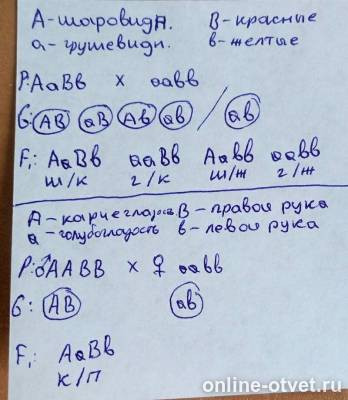 А-шаровидн. В-красные
а-грушевидн. в-желтые
Р: АаВв х аавв
G: АВ аВ Ав ав / ав
F₁: АаВв ааВв Аавв аавв
ш/к г/к ш/ж г/ж
А-кареглазость В-правая рука
а-голубоглазость в-левая рука
Р: ♂ААВВ х ♀ аавв
G: АВ ав
F₁ АаВв
к/п
online-otvet.ru